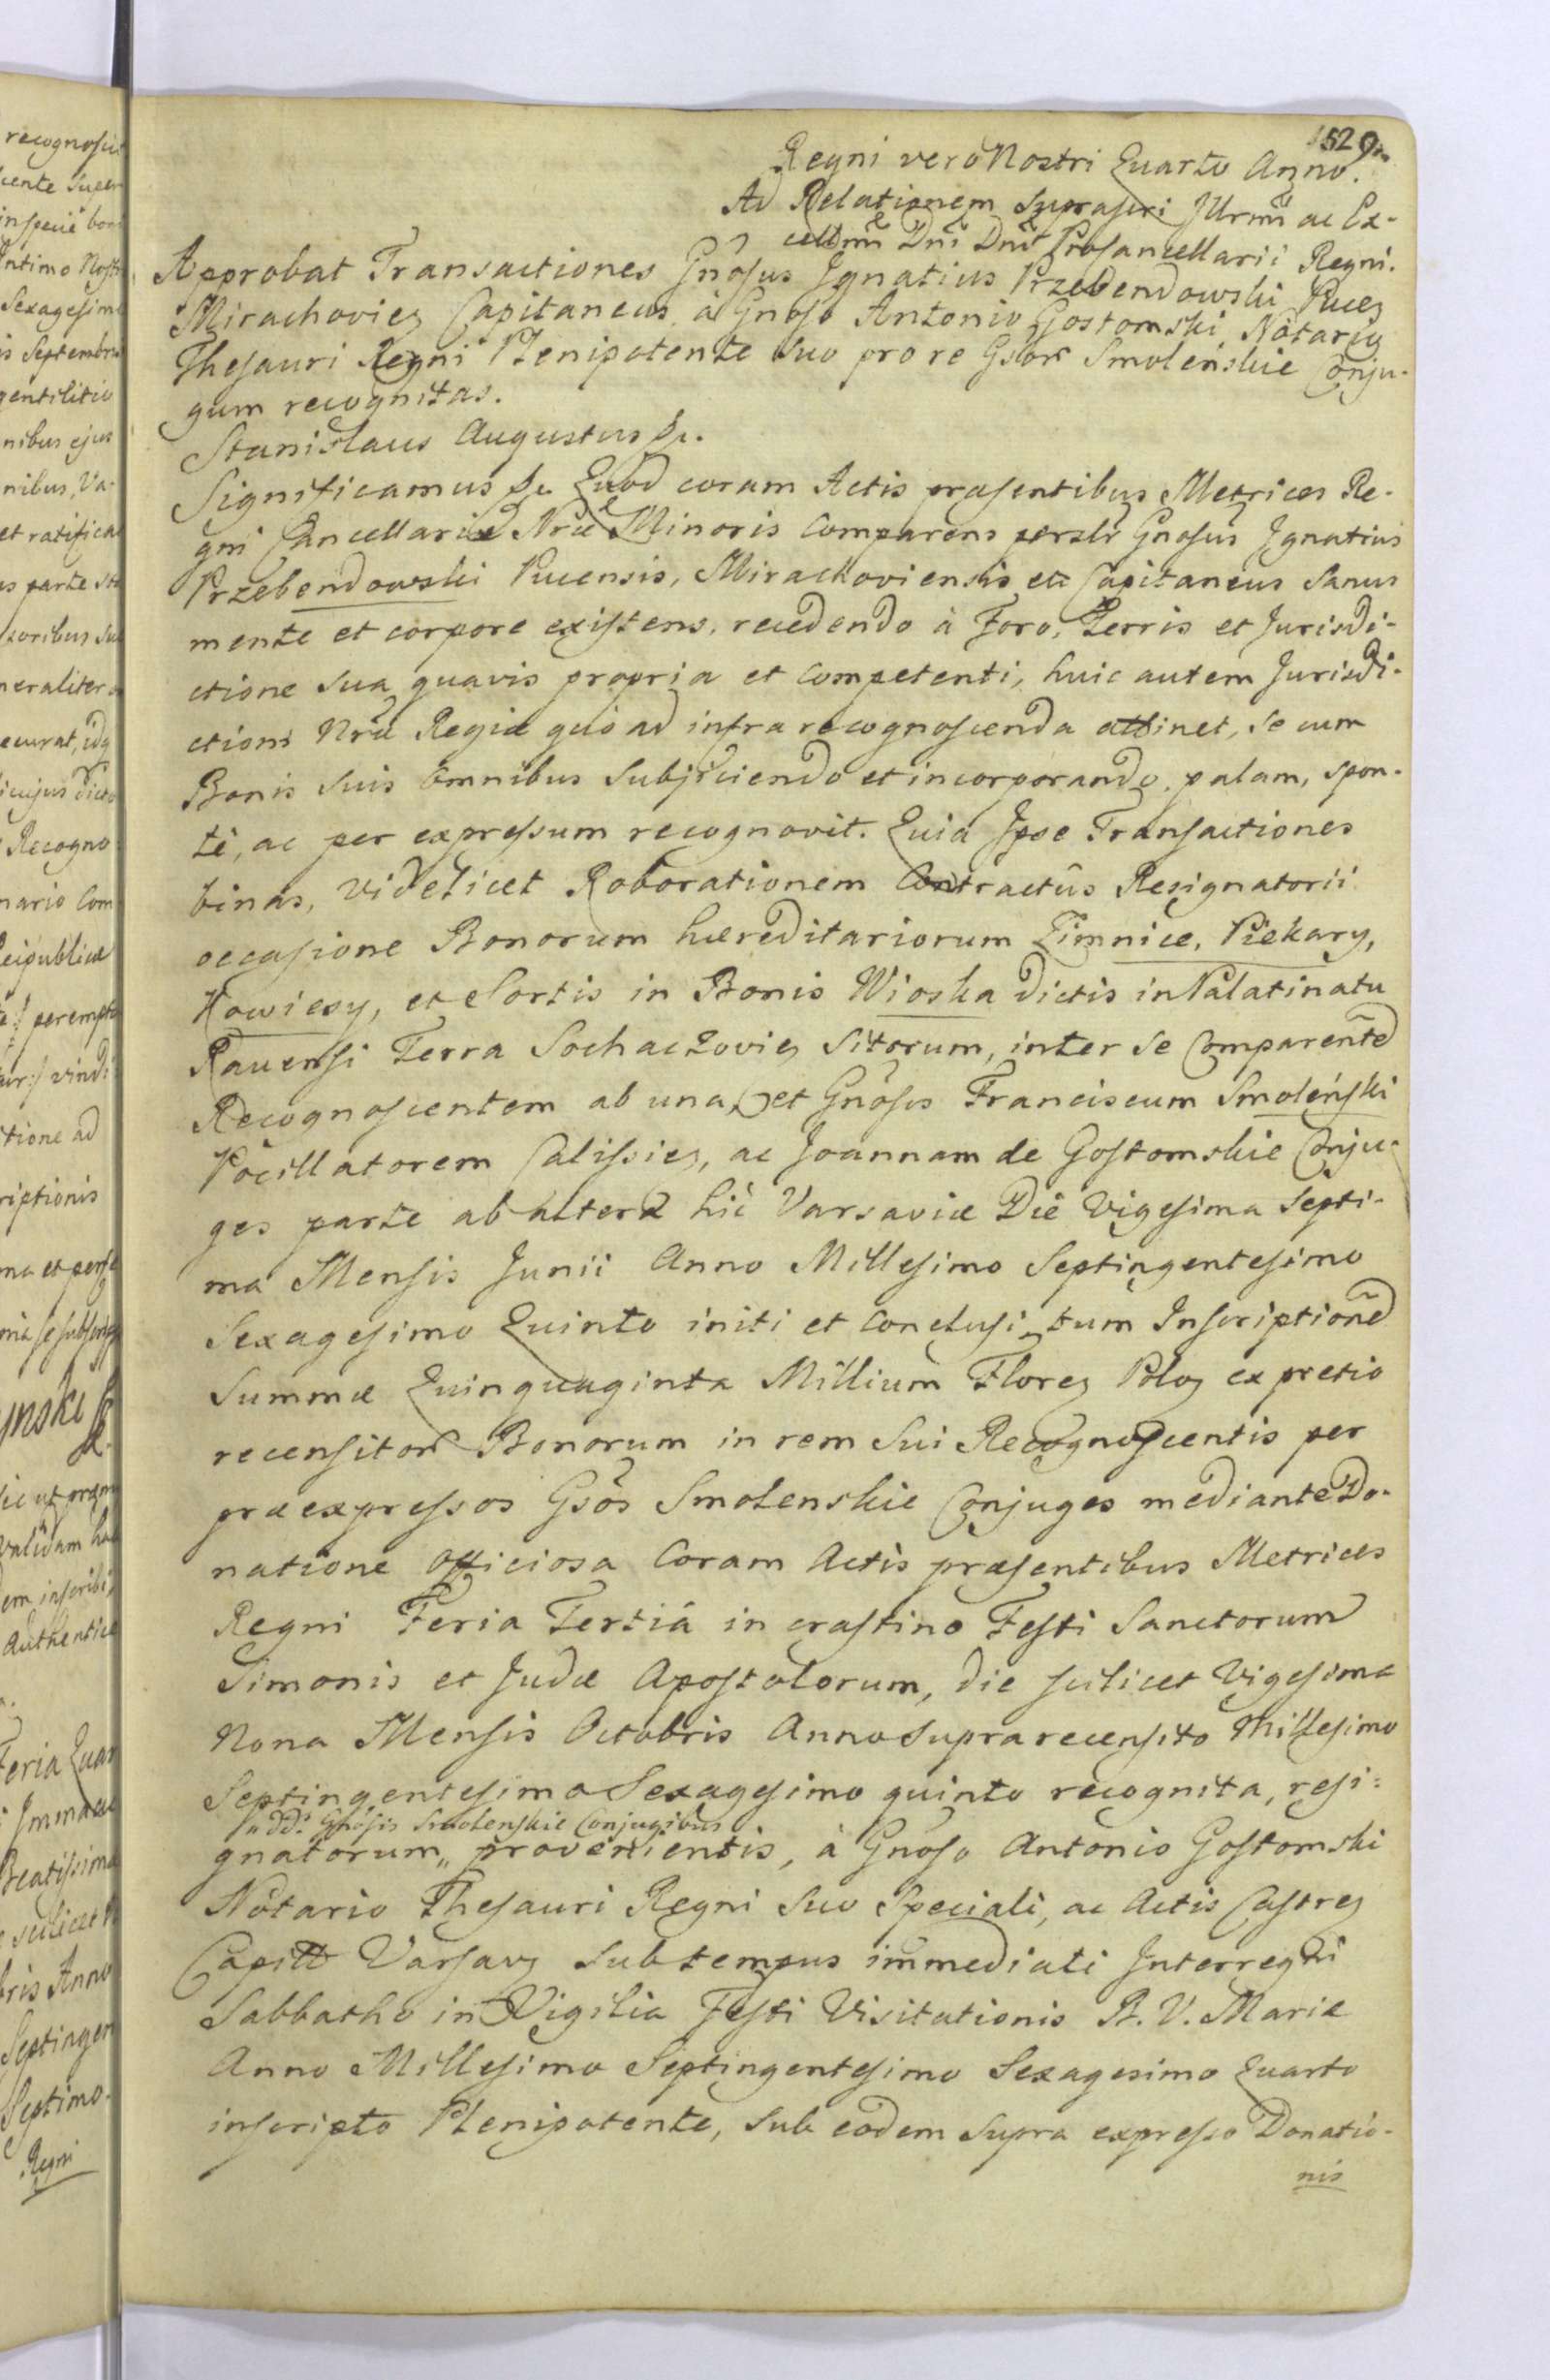 152
Regni verò Nostri Quarto Anno.
Ad Relationem suprascri Illrmi ac Ex-
cellmi Dni Dni Procancellarii Regni.
Approbat Transactiones Gnosus Ignatius Przebendowski Puceꝫ
Mirachovieꝫ Capitaneus à Gnoso Antonio Gostomski Notario
Thesauri Regni Plenipotente suo pro re Gsorr Smoleńskie Conju-
gum recognitas.
Stanislaus Augustus &c.
Significamus &c. Quod coram Actis præsentibus Metrices Re-
gni Cancellariæ Nræ Minoris Comparens persltr Gnosus Ignatius
Przebendowski Pucensis, Mirachoviensis etc Capitaneus Sanus
mente et corpore existens, recedendo à Foro, Terris et Jurisdi-
ctione sua quavis propria et competenti, huic autem Jurisdi-
ctioni Nræ Regiæ quò ad infra recognoscenda attinet, se cum
Bonis suis omnibus Subjiciendo et incorporando, palam, spon-
tè, ac per expressum recognovit. Quia Ipse Transactiones
binas, videlicet Roborationem Contractûs Resignatorii
occasione Bonorum hæreditariorum Zimnice, Piekary,
Nowiesy, et Sortis in Bonis Wioska dictis in Palatinatu
Ravensi Terra Sochaczovieꝫ Sitorum, inter se Comparente
Recognoscentem ab una, et Gnosos Franciscum Smoleński
Pocillatorem Calissieꝫ, ac Joannam de Gostomskie Conju-
ges parte ab altera hic Varsaviæ Die Vigesima Septi-
ma Mensis Junii Anno Millesimo Septingentesimo
Sexagesimo Quinto initi et conclusi, tum Inscriptione
Summæ Quinquaginta Millium Floreꝫ Poloꝫ ex pretio
recensitorr Bonorum in rem Sui Recognoscentis per
præexpressos Gsos Smolenskie Conjuges mediante Do-
natione officiosa Coram Actis præsentibus Metrices
Regni Feria Tertia in crastino Festi Sanctorum
Simonis et Judæ Apostolorum, die scilicet Vigesima
Nona Mensis Octobris Anno supra recensito Millesimo
Septingentesimo Sexagesimo quinto recognita, resi-
„ dd: Gnosis Smolenskie Conjugibus
gnatorum „ provenientis, à Gnoso Antonio Gostomski
Notario Thesauri Regni suo Speciali, ac Actis Castreꝫ
Capitt Varsavꝫ Sub tempus immediati Interregni
Sabbatho in Vigilia Festi Visitationis B. V. Mariæ
Anno Millesimo Septingentesimo Sexagesimo Quarto
inscripto Plenipotente, sub eodem supra expresso Donatio-
nis